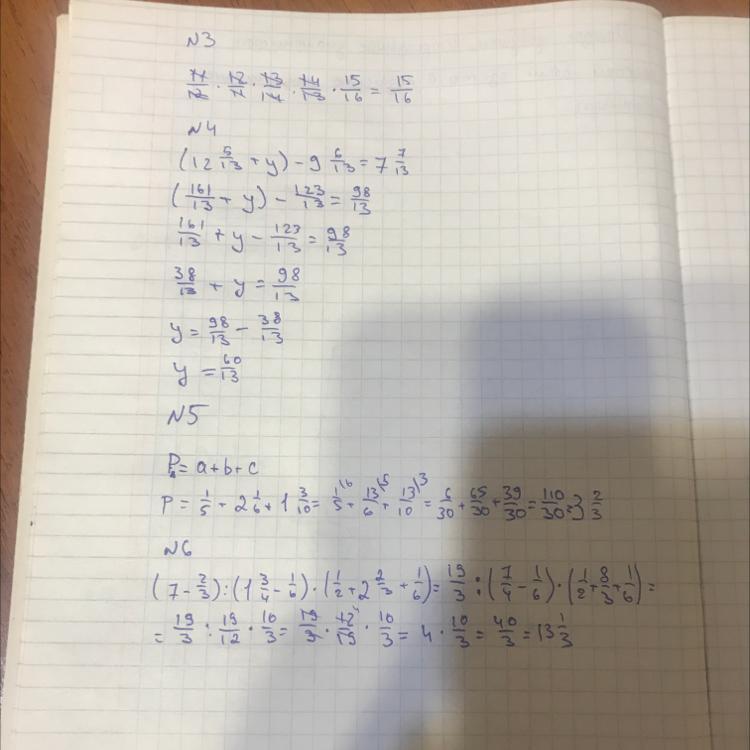 N3
11/12 · 12/11 · 13/14 · 14/13 · 15/16 = 15/16
N4
(12 5/13 + y) - 9 6/13 = 7 7/13
(161/13 + y) - 123/13 = 98/13
161/13 + y - 123/13 = 98/13
38/13 + y = 98/13
y = 98/13 - 38/13
y = 60/13
N5
P = a + b + c
P = 1/5 + 2 1/6 + 1 3/10 = 1/5 \6 + 13/6 \5 + 13/10 \3 = 6/30 + 65/30 + 39/30 = 110/30 = 3 2/3
N6
(7 - 2/3) : (1 3/4 - 1/6) · (1/2 + 2 2/3 + 1/6) = 19/3 : (7/4 - 1/6) · (1/2 + 8/3 + 1/6) =
= 19/3 : 19/12 · 10/3 = 19/3 · 12/19 · 10/3 = 4 · 10/3 = 40/3 = 13 1/3